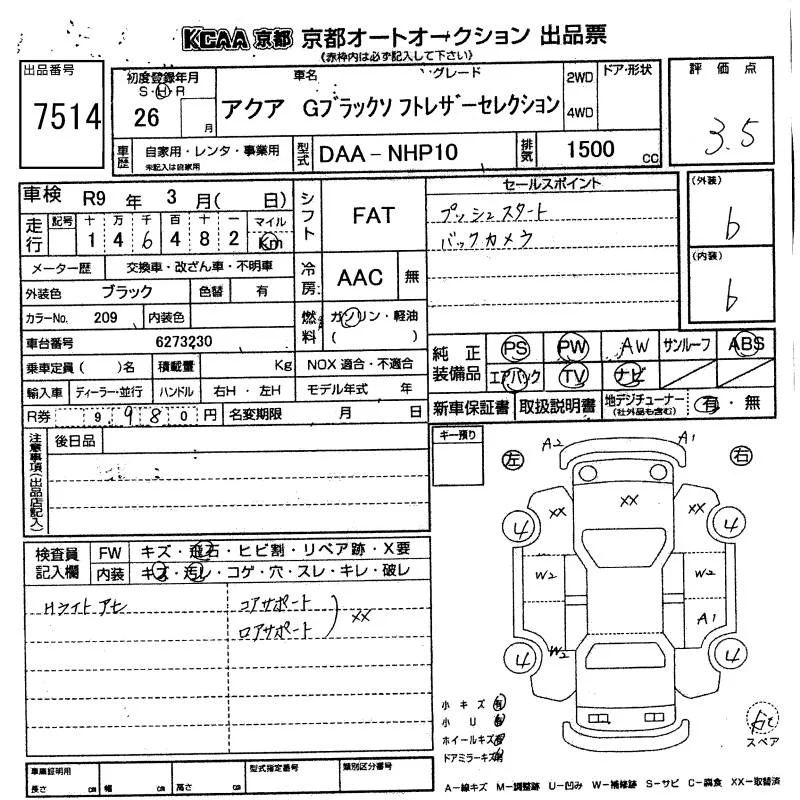 KCAA 京都 京都オートオークション 出品票
(赤枠内は必ず記入して下さい)
出品番号
7514
初度登録年月
S・H・R
26
月
車名
グレード
アクア Gブラックソフトレザーセレクション
2WD
4WD
ドア・形状
評価点
3.5
車歴
自家用・レンタ・事業用
未記入は自家用
型式
DAA-NHP10
排気
1500
cc
車検
R9 年 3 月( 日)
走行
記号
十 万 千 百 十 一
1 4 6 4 8 2
マイル
Km
メーター歴
交換車・改ざん車・不明車
外装色
ブラック
色替
有
カラーNo.
209
内装色
車台番号
6273230
乗車定員( )名
積載量
Kg
輸入車
ディーラー・並行
ハンドル
右H・左H
R券
9,980円
名変期限
月 日
シフト
FAT
冷房
AAC
無
燃料
ガソリン・軽油
( )
NOX 適合・不適合
モデル年式
年
セールスポイント
プッシュスタート
バックカメラ
(外装)
6
(内装)
6
純正装備品
PS
PW
AW
サンルーフ
ABS
エアバック
TV
ナビ
新車保証書
取扱説明書
地デジチューナー
(社外品も含む)
有・無
注意事項(出品店記入)
後日品
キー預り
検査員記入欄
FW
キズ・飛石・ヒビ割・リペア跡・X要
内装
キズ・汚レ・コゲ・穴・スレ・キレ・破レ
Hライトアセ
コアサポート
ロアサポート
XX
左
右
A2
A1
XX
XX
XX
4
4
W2
W2
A1
W2
4
4
小キズ 有
小U 有
ホイールキズ
ドアミラーキズ
スペア
車庫証明用
長さ cm
幅 cm
高さ cm
型式指定番号
類別区分番号
A-線キズ M-調整跡 U-凹み W-補修跡 S-サビ C-腐食 XX-取替済